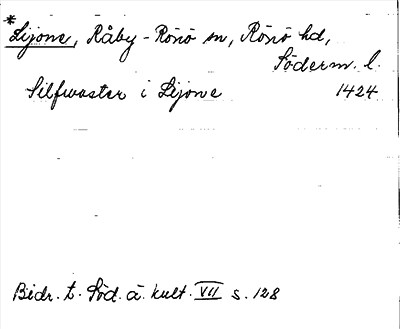 * Lijone, Råby-Rönö sn, Rönö hd,
Söderm. l.
Silfwaster i Lijone 1424
Bidr. t. Söd. ä. kult. VII s. 128